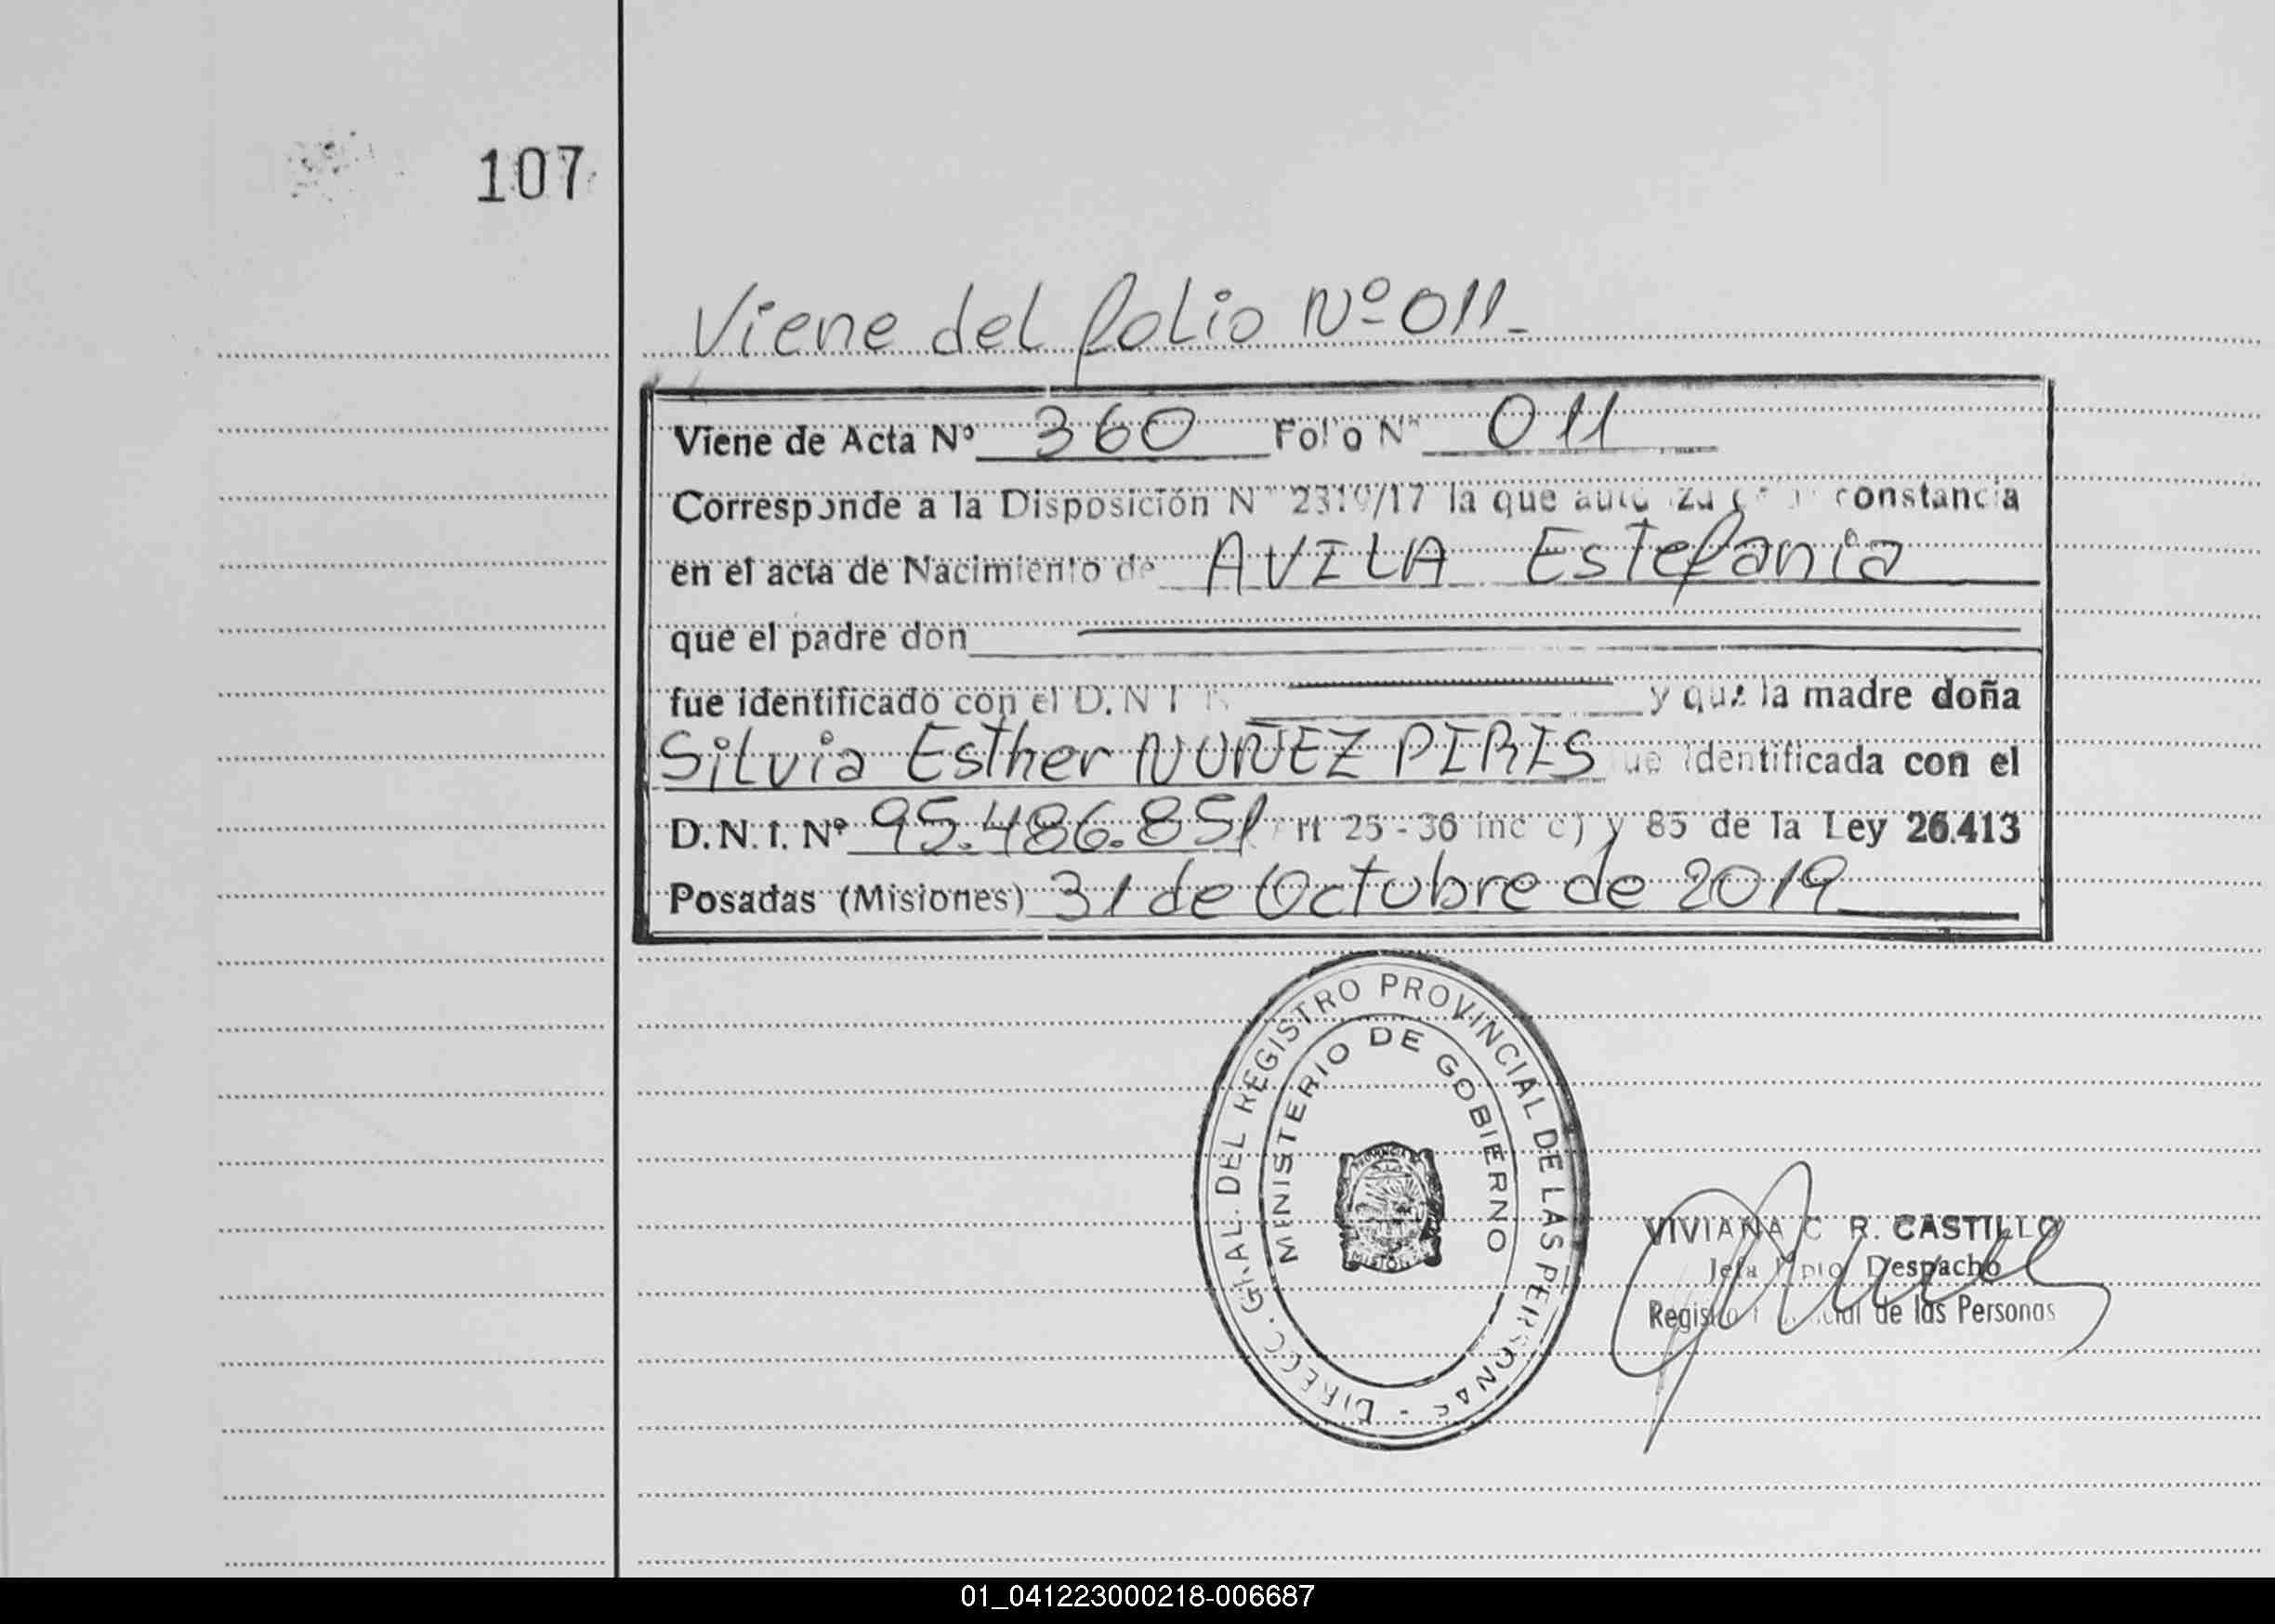 107
Viene del folio Nº 011-
Viene de Acta Nº 360 Folio Nº 011
Corresponde a la Disposición Nº /17 la que constancia
en el acta de Nacimiento de AVILA Estefania
que el padre don
fue identificado con el D.N.I. y que la madre doña
Silvia Esther NUÑEZ PIRIS fue identificada con el
D.N.I. Nº 95.486.851 Art 25 - 36 inc c) y 85 de la Ley 26.413
Posadas (Misiones) 31 de Octubre de 2019
DIRECC. GRAL. DEL REGISTRO PROVINCIAL DE LAS PERSONAS -
MINISTERIO DE GOBIERNO
PROVINCIA DE
MISIONES
VIVIANA C R. CASTILLO
Jefa Dpto Despacho
Registro Provincial de las Personas
01_041223000218-006687